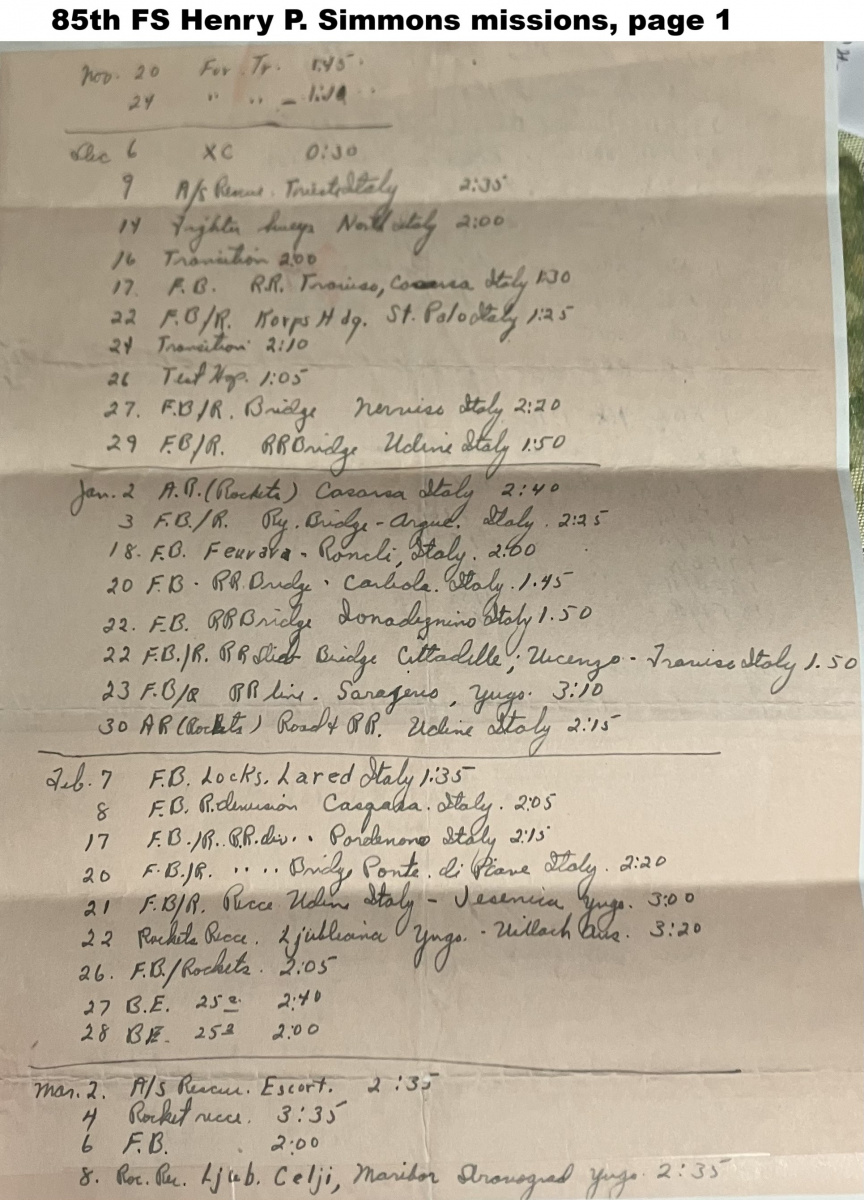 85th FS Henry P. Simmons missions, page 1
Nov. 20 For. Tr. 1:45
24 " "
Dec 6 XC 0:30
9 A/S Rescue. Trieste Italy 2:35
14 Fighter Sweep North Italy 2:00
16 Transition 2:00
17. F.B. R.R. Traviso, Italy 1:30
22 F.B/R. Korps Hdq. St. Polo Italy 1:25
24 Transition 2:10
26 Test Hop. 1:05
27. F.B/R. Bridge Nerviso Italy 2:20
29 F.B/R. RR Bridge Udine Italy 1:50
Jan. 2 A.R. (Rockets) Casarsa Italy 2:40
3 F.B./R. Ry. Bridge - Italy. 2:25
18. F.B. - Italy. 2:00
20 F.B. RR. Bridge. Italy. 1.45
22. F.B. RR Bridge Italy 1.50
22 F.B./R. RR Bridge Cittadille; Vicenzo - Traviso Italy 1.50
23 F.B/R RR line. , Yugo. 3:10
30 AR (Rockets) Road & RR. Udine Italy 2:15
Feb. 7 F.B. Locks. Lared Italy 1:35
8 F.B. Italy. 2:05
17 F.B./R. R.R. div. Pordenono Italy 2:15
20 F.B./R. " " Bridge Ponte. di Piave Italy. 2:20
21 F.B/R. Recce Udine Italy - Jesenica Yugo. 3:00
22 Rockets Recce. Ljubliana Yugo. - Villach Aus. 3:20
26. F.B./Rockets. 2:05
27 B.E. 25 2:40
28 B.E. 25 2:00
Mar. 2. A/S Rescue. Escort. 2:35
4 Rocket recce. 3:35
6 F.B. 2:00
8. Roc. Rec. Ljub. Celji, Maribor Yugo. 2:35